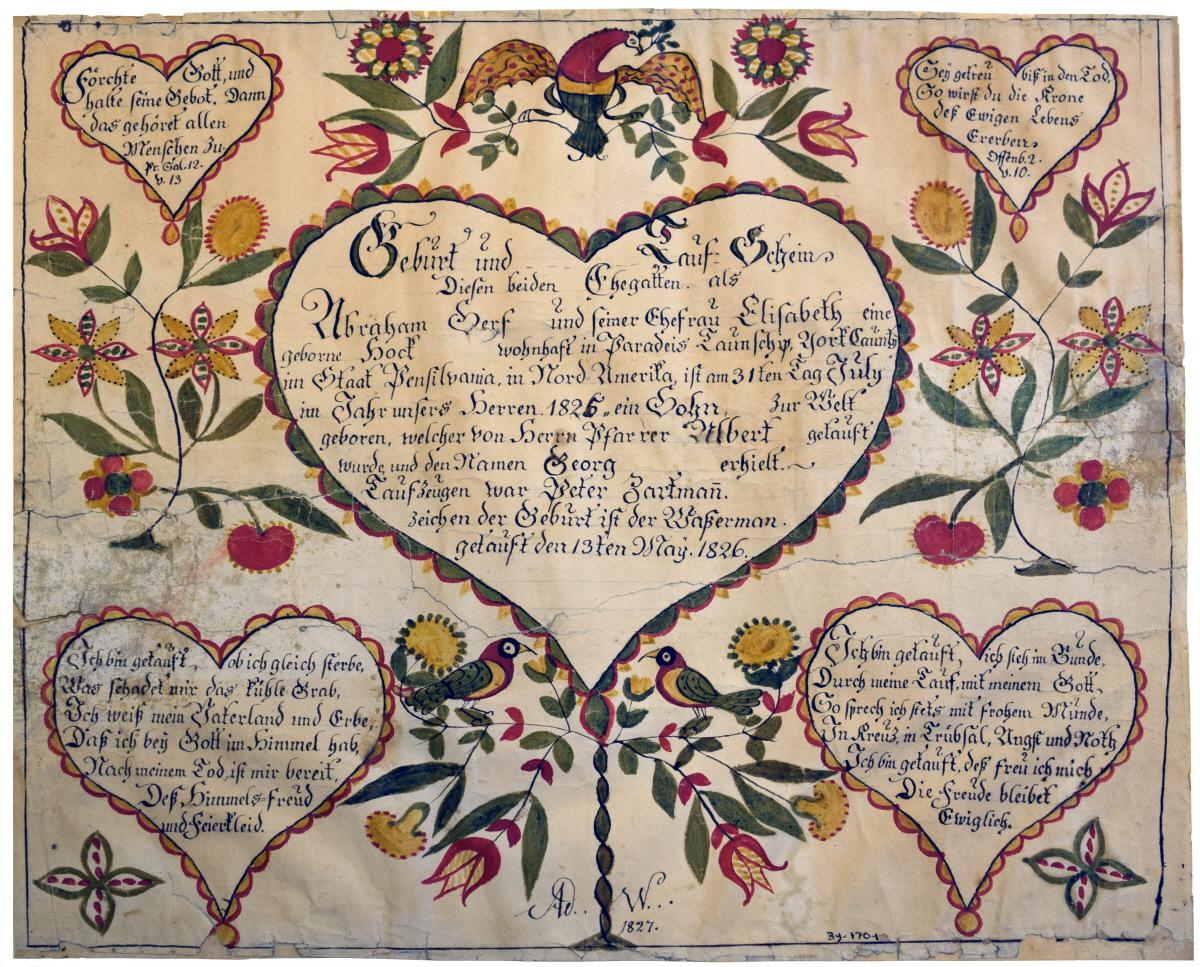 Förchte Gott, und
halte seine Gebot. Dann
das gehöret allen
Menschen zu.
Pr. Sal. 12.
v. 13
Sey getreu biß in den Tod,
So wirst du die Krone
deß Ewigen Lebens
Ererben.
Offenb. 2.
v. 10.
Geburt und Tauf-Schein
Diesen beiden Ehegatten. als
Abraham Serf und seiner Ehefrau Elisabeth eine
geborne Hock wohnhaft in Paradeis Taunschip, York Caunty
im Staat Pensilvania, in Nord-Amerika, ist am 31ten Tag July
im Jahr unsers Herren. 1825, ein Sohn, zur Welt
geboren, welcher von Herrn Pfarrer Albert getauft
wurde und den Namen Georg erhielt.
Taufzeugen war Peter Zartman̄.
zeichen der Geburt ist der Waßerman.
getauft den 13ten May. 1826.
Ich bin getauft, ob ich gleich sterbe,
Was schadet mir das kühle Grab,
Ich weiß mein Vaterland und Erbe,
Daß ich bey Gott im Himmel hab,
Nach meinem Tod, ist mir bereit,
Deß Himmels=Freud
und Feierkleid.
Ich bin getauft, ich steh im Bunde,
Durch meine Tauf, mit meinem Gott,
So sprech ich stets mit frohem Munde,
In Kreuz, in Trübsal, Angst und Noth
Ich bin getauft, deß freu ich mich,
Die Freude bleibet
Ewiglich.
Ad.. W...
1827.
39-170-1